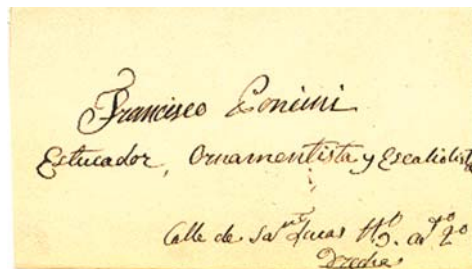 Francisco Poncini
Estucador, Ornamentista y Escaliolista
Calle de San Lucas 2º
Drecha